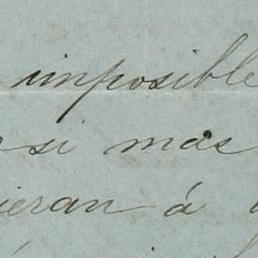 imposible
si mas
ieran á